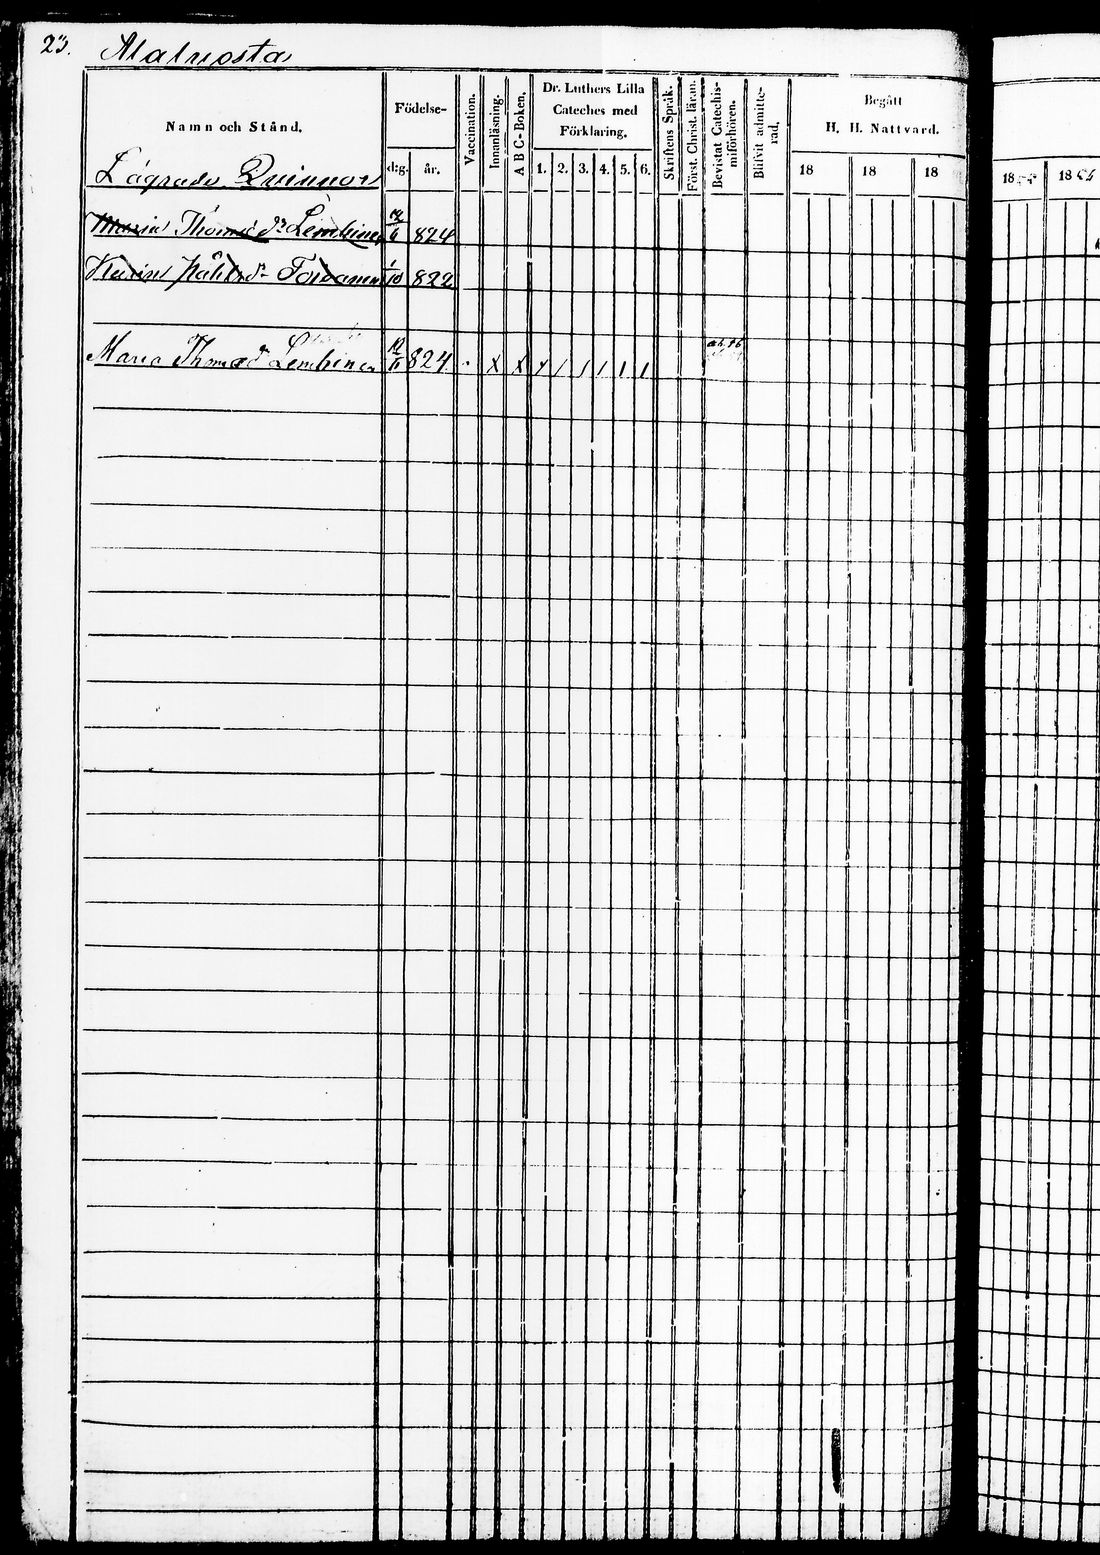 23. Alatuosta
Namn och Stånd.
Födelse-
d:g. år.
Vaccination.
Innanläsning.
A B C-Boken.
Dr. Luthers Lilla
Cateches med
Förklaring.
1. 2. 3. 4. 5. 6.
Skriftens Språk.
Först. Christ. läran.
Bevistat Catechis-
miförhören.
Blifvit admitte-
rad.
Begått
H. H. Nattvard.
18 18 18
18 18
Lägrade Quinnor
Maria Thomæ dr 824
Karin dr 822
Maria Thomæ dr 12/11 824 X X